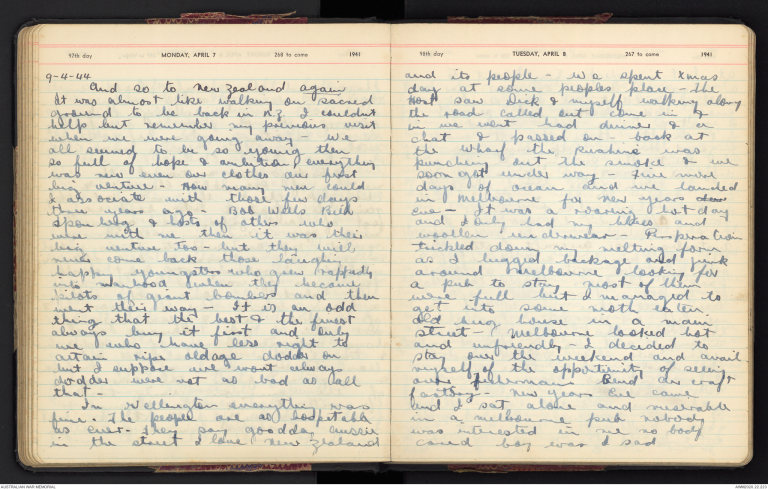 97th day MONDAY, APRIL 7 268 to come 1941
9-4-44
And so to New Zealand again
It was almost like walking on sacred
ground to be back in N.Z. I couldn't
help but remember my previous visit
when we were going away. We
all seemed to be so young then
so full of hope & ambition, everything
was new even our clothes our first
big venture - How many men could
I associate with those few days
three years ago - Bob Wells
& lots of others who
were with me then it was their
big venture too - but they will
never come back those laughing
happy youngsters who grew rapidly
into manhood when they became
pilots of giant bombers and then
went their way - It is an odd
thing that the best & the finest
always buy it first and only
we who have less right to
attain ripe old age dodder on
but I suppose we wont always
dodder were not as bad as all
that -
In Wellington everything was
fine. The people are as hospitable
as ever - They say goodday Aussie
in the street I love New Zealand
98th day TUESDAY, APRIL 8 267 to come 1941
and its people - We spent Xmas
day at some peoples place - the
Host saw Dick & myself walking along
the road called out come in &
in we went had dinner & a
chat & passed on - back at
the wharf the was
punching out the smoke & we
soon got under way - Five more
days of ocean and we landed
in Melbourne for New years
Eve - It was a roaring hot day
and I only had my blues and
woollen underwear - Perspiration
trickled down my melting form
as I lugged baggage and junk
around Melbourne looking for
a pub to stay most of them
were full but I managed to
get into some moth eaten
old bug house in a main
street - Melbourne looked hot
and unfriendly - I decided to
stay over the weekend and avail
myself of the opportunity of seeing
our Fishermans Bend aircraft
factory - New years Eve came
and I sat alone and miserable
in a Melbourne pub nobody
was interested in me no body
cared boy was I sad
AUSTRALIAN WAR MEMORIAL